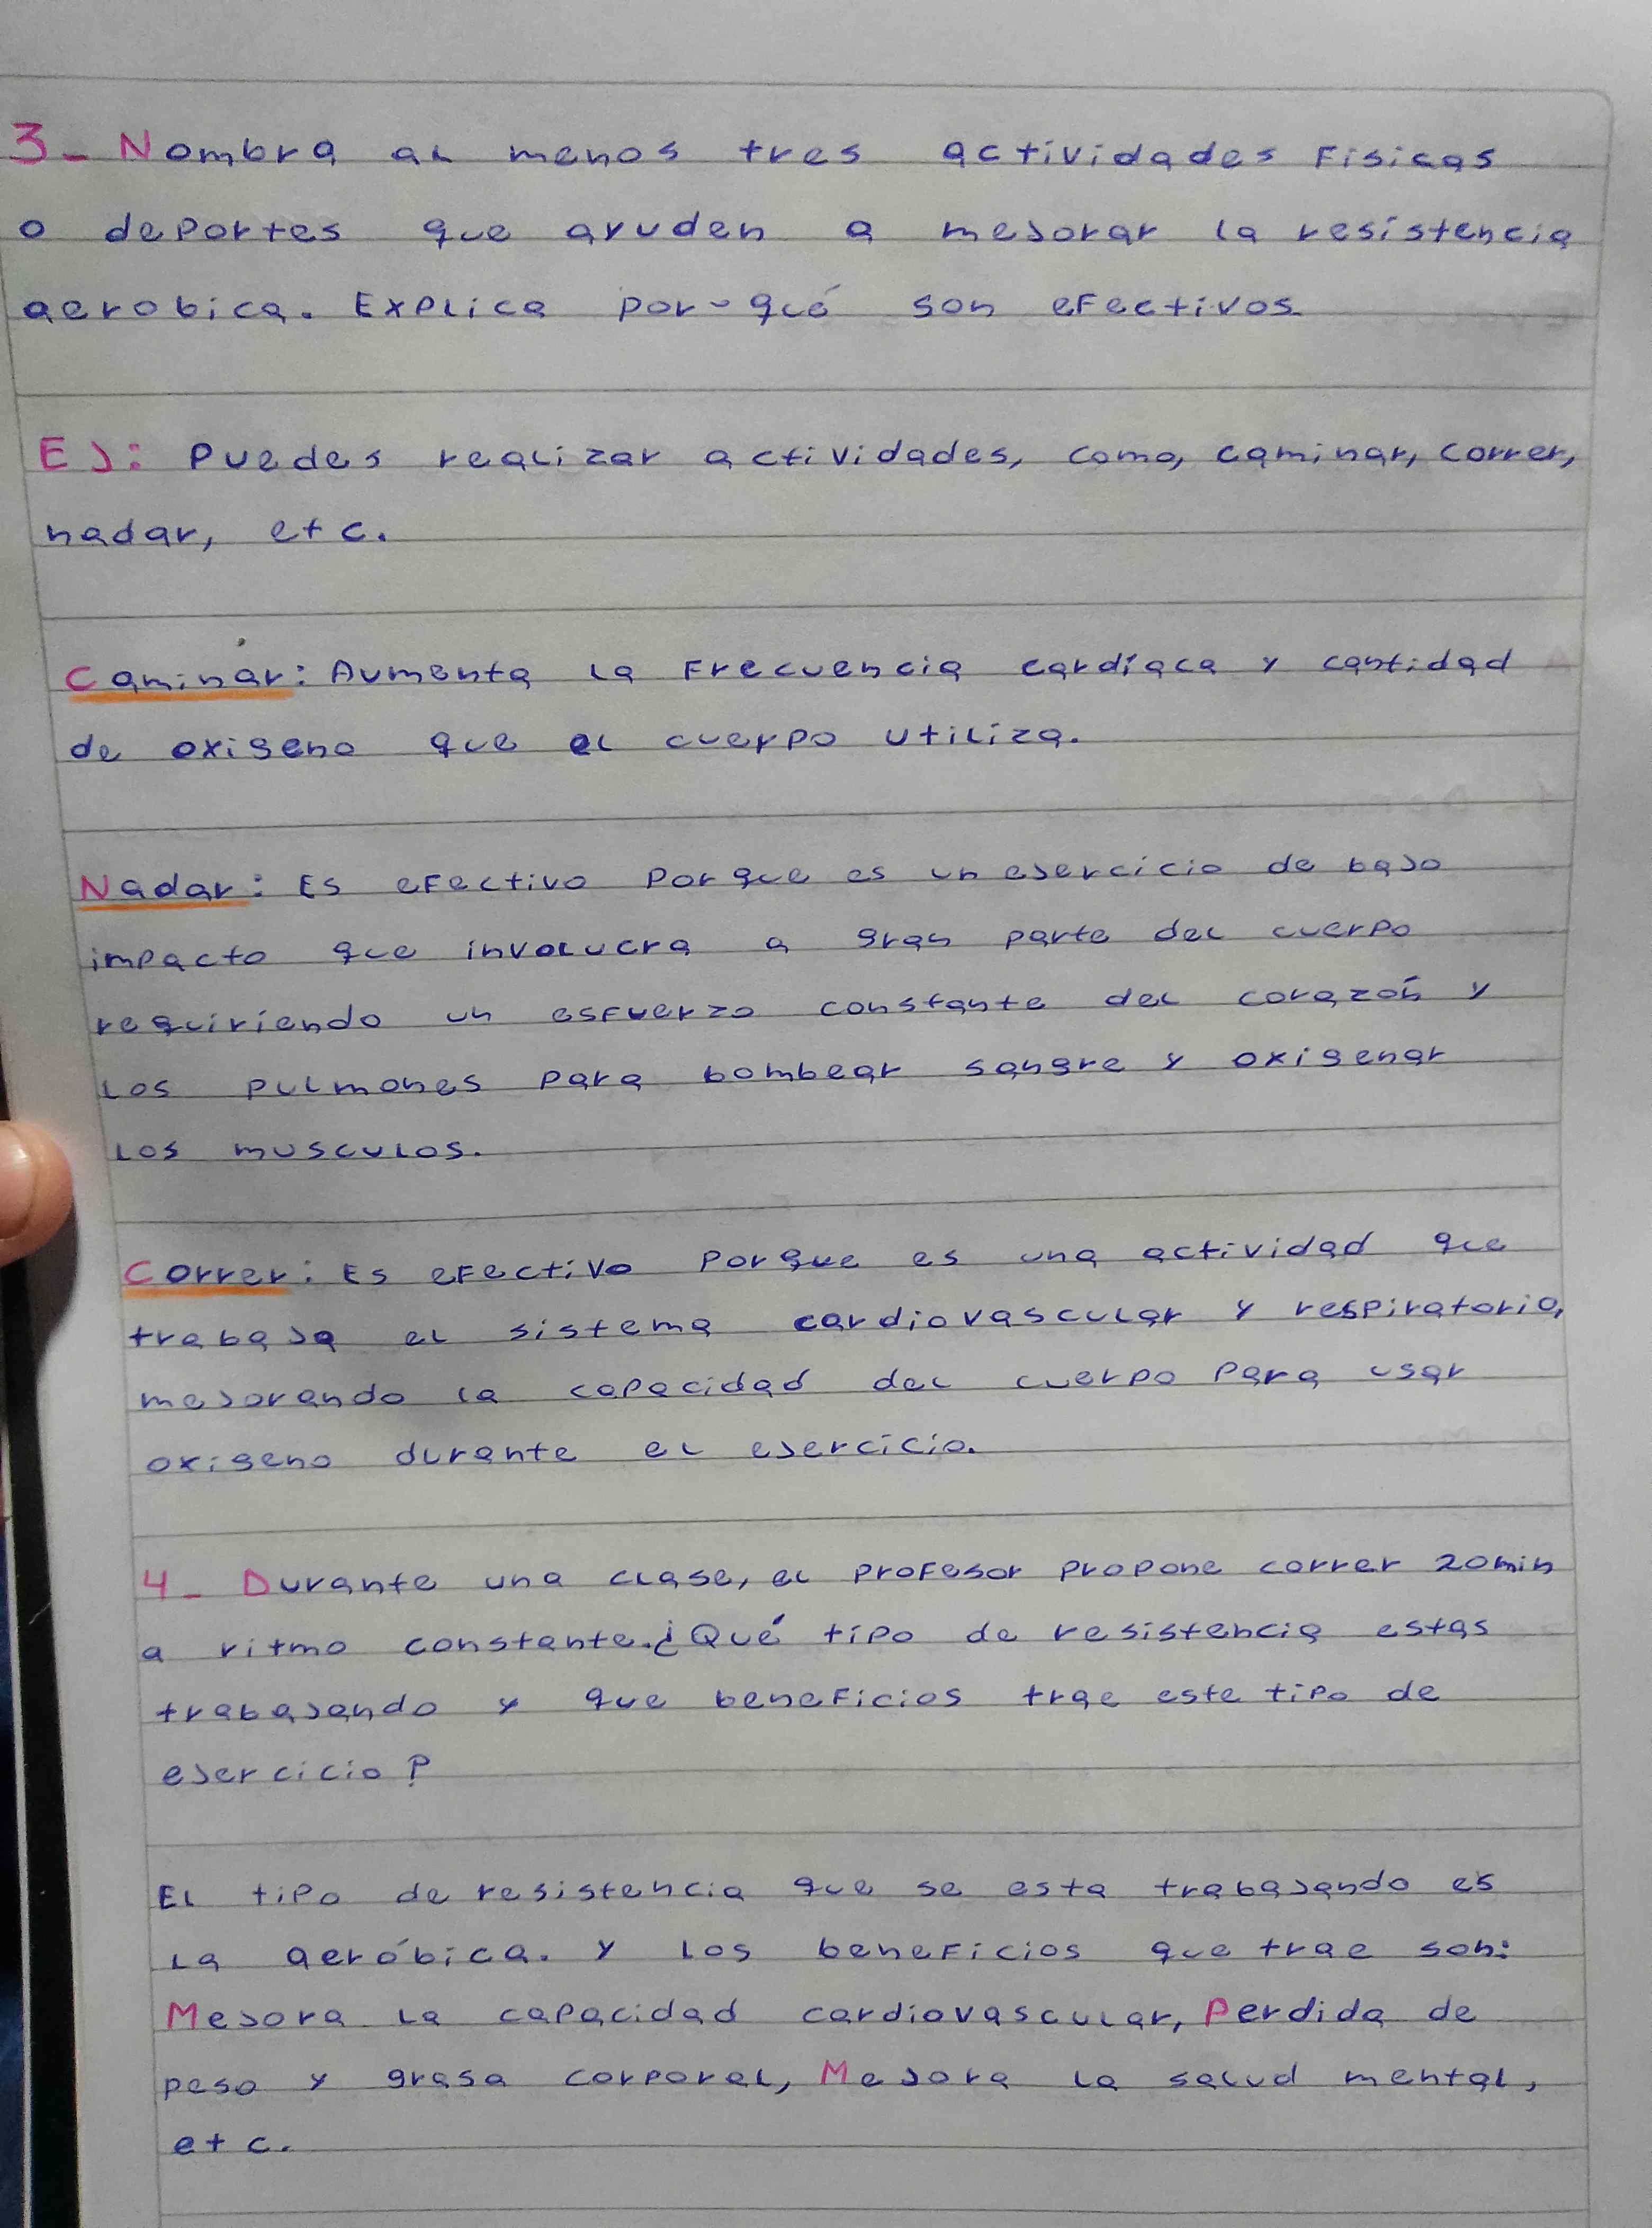 3- Nombra al menos tres actividades Fisicas
o deportes que ayuden a mejorar la resistencia
aerobica. Explica por-qué son efectivos.
EJ: Puedes realizar actividades, como, caminar, correr,
nadar, etc.
Caminar: Aumenta la Frecuencia cardíaca y cantidad
de oxigeno que el cuerpo utiliza.
Nadar: Es efectivo porque es un ejercicio de bajo
impacto que involucra a gran parte del cuerpo
requiriendo un esfuerzo constante del corazón y
los pulmones para bombear sangre y oxigenar
los musculos.
Correr: Es efectivo porque es una actividad que
trabaja el sistema cardiovascular y respiratorio,
mejorando la capacidad del cuerpo para usar
oxigeno durante el ejercicio.
4- Durante una clase, el profesor propone correr 20min
a ritmo constante. ¿Qué tipo de resistencia estas
trabajando y que beneficios trae este tipo de
ejercicio?
El tipo de resistencia que se esta trabajando es
la aeróbica. y los beneficios que trae son:
Mejora la capacidad cardiovascular, Perdida de
peso y grasa corporal, Mejora la salud mental,
etc.